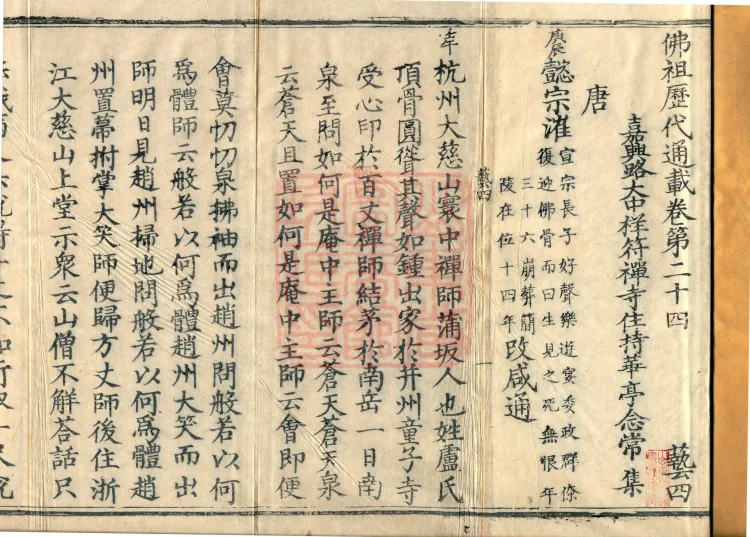 佛祖歷代通載卷第二十四 藝四
嘉興路大中祥符禪寺住持華亭念常集
唐
庚辰 懿宗漼 宣宗長子好聲樂遊宴委政群僚
復迎佛骨而曰生見之死無恨年
三十六崩葬簡
陵在位十四年 改咸通
藝四 一
年 杭州大慈山寰中禪師蒲坂人也姓盧氏
頂骨圓聳其聲如鍾出家於并州童子寺
受心印於百丈禪師結茅於南岳一日南
泉至問如何是庵中主師云蒼天蒼天泉
云蒼天且置如何是庵中主師云會即便
會莫忉忉泉拂袖而出趙州問般若以何
為體師云般若以何為體趙州大笑而出
師明日見趙州掃地問般若以何為體趙
州置幕拊掌大笑師便歸方丈師後住浙
江大慈山上堂示衆云山僧不解荅話只